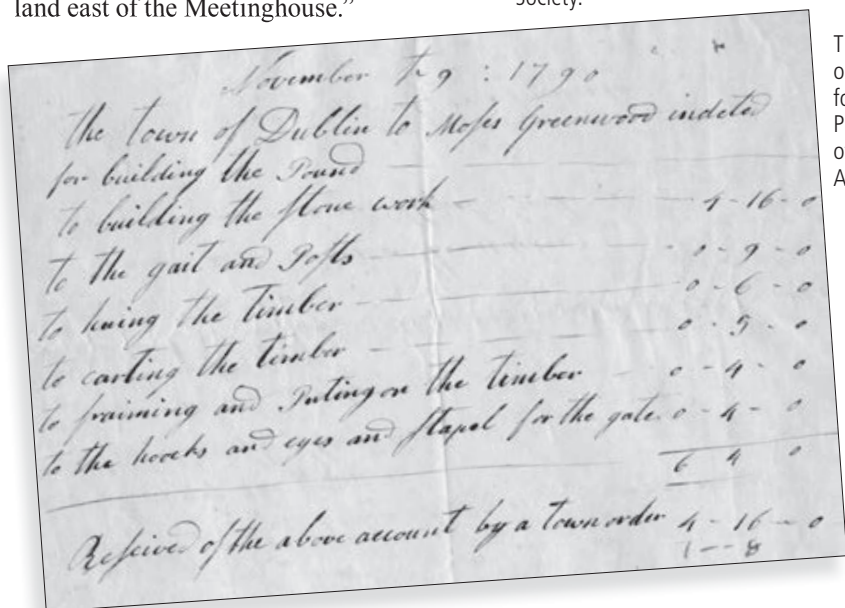 land east of the Meetinghouse.”
Society.
November th 9 : 1790
the town of Dublin to Moses Greenwood indeted
for building the Pound
to building the stone work 4-16-0
to the gait and Posts 0-9-0
to huing the timber 0-6-0
to carting the timber 0-5-0
to fraiming and Puting on the timber 0-4-0
to the hoocks and eyes and stapel for the gate 0-4-0
6 4 0
Resceived of the above account by a town order 4-16-0
1--8